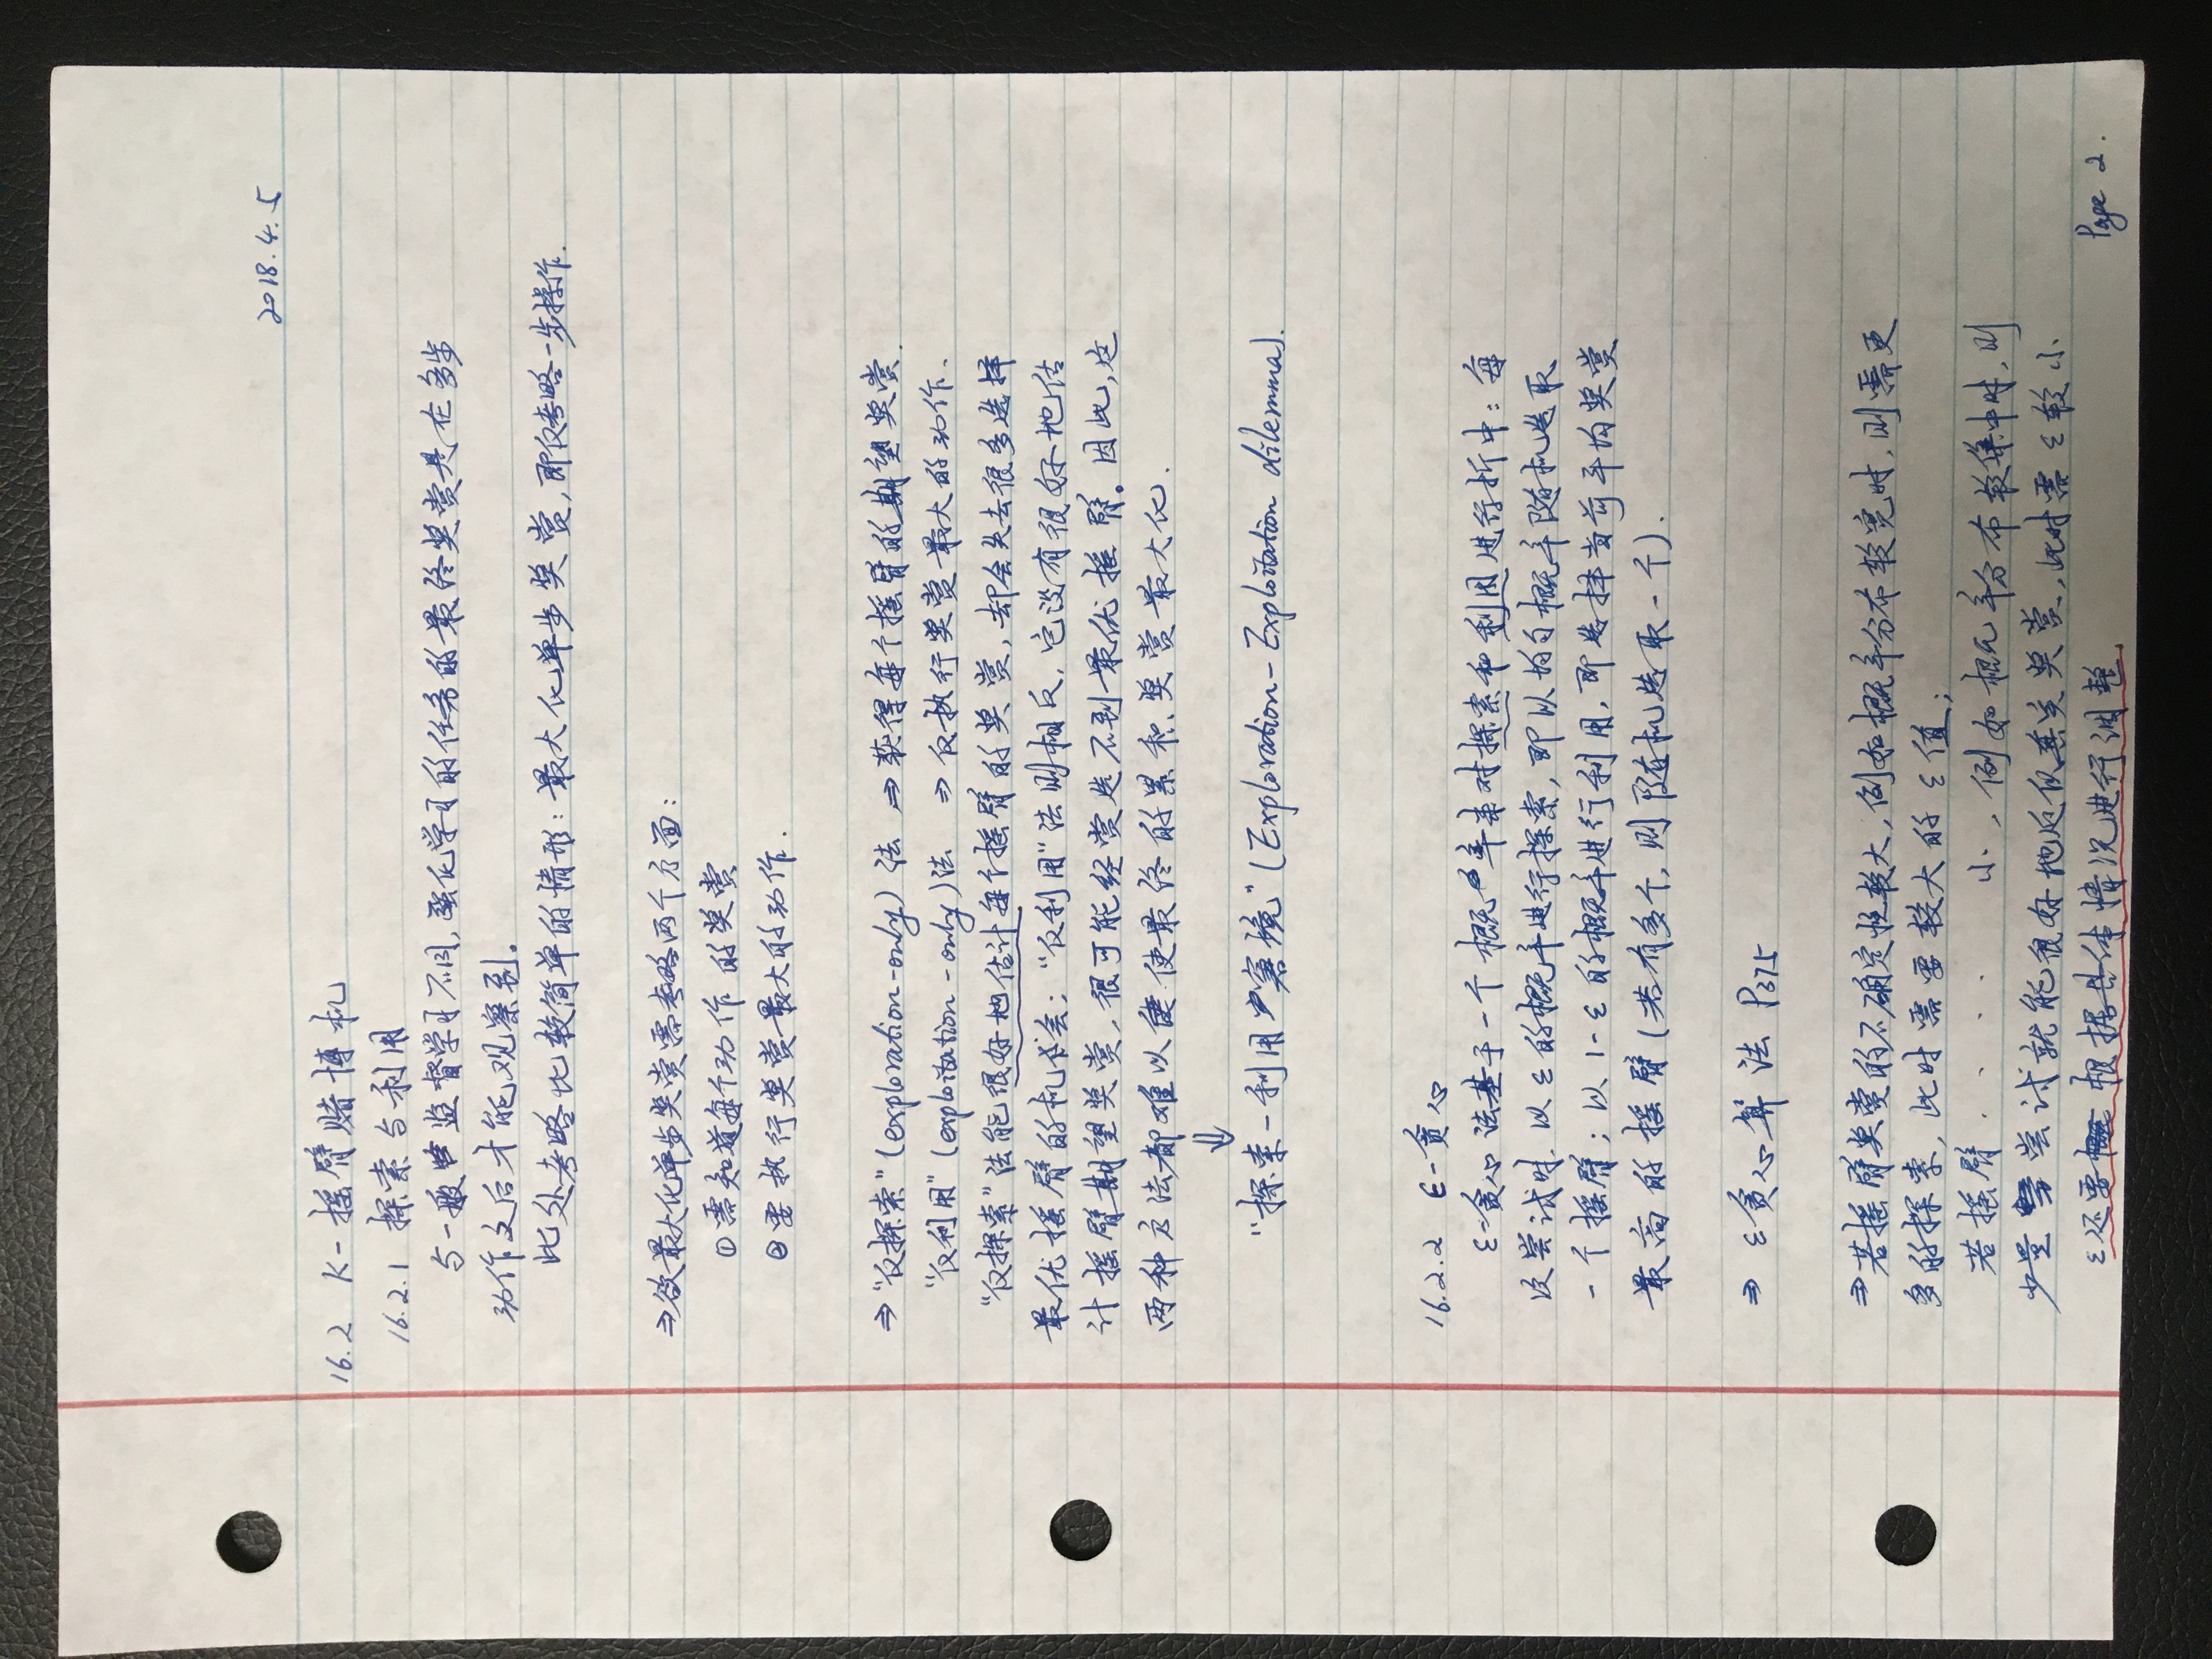 2018.4.5
16.2 K-摇臂赌博机
16.2.1 探索与利用
与一般监督学习不同,强化学习的任务的最终奖赏是在多步
动作之后才能观察到。
此处考略比较简单的情形:最大化单步奖赏,即仅考略一步操作.
⇒欲最大化单步奖赏需考略两个方面:
①需知道每个动作的奖赏
②要执行奖赏最大的动作.
⇒"仅探索"(exploration-only)法 ⇒获得每个摇臂的期望奖赏.
"仅利用"(exploitation-only)法 ⇒仅执行奖赏最大的动作.
"仅探索"法能很好地估计每个摇臂的奖赏,却会失去很多选择
最优摇臂的机会;"仅利用"法则相反,它没有很好地估
计摇臂期望奖赏,很可能经常选不到最优摇臂。因此,这
两种方法都难以使最终的累积奖赏最大化.
⇓
"探索-利用窘境"(Exploration-Exploitation dilemma).
16.2.2 ε-贪心
ε-贪心法基于一个概率来对探索和利用进行折中:每
次尝试时.以ε的概率进行探索,即以均匀概率随机选取
一个摇臂;以1-ε的概率进行利用,即选择当前平均奖赏
最高的摇臂(若有多个,则随机选取一个).
⇒ ε贪心算法 P375
⇒若摇臂奖赏的不确定性较大,例如概率分布较宽时,则需更
多的探索,此时需要较大的ε值;
若摇臂 . . . . 小,例如概率分布较集中时,则
少量尝试就能很好地近似真实奖赏,此时需ε较小
ε还要根据具体情况进行调整.
Page 2.